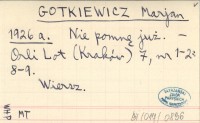 GOTKIEWICZ Marjan
1926 a. Nie pomnę już. –
Orli Lot (Kraków) 7, nr 1-2:
8-9.
Wiersz.
MT